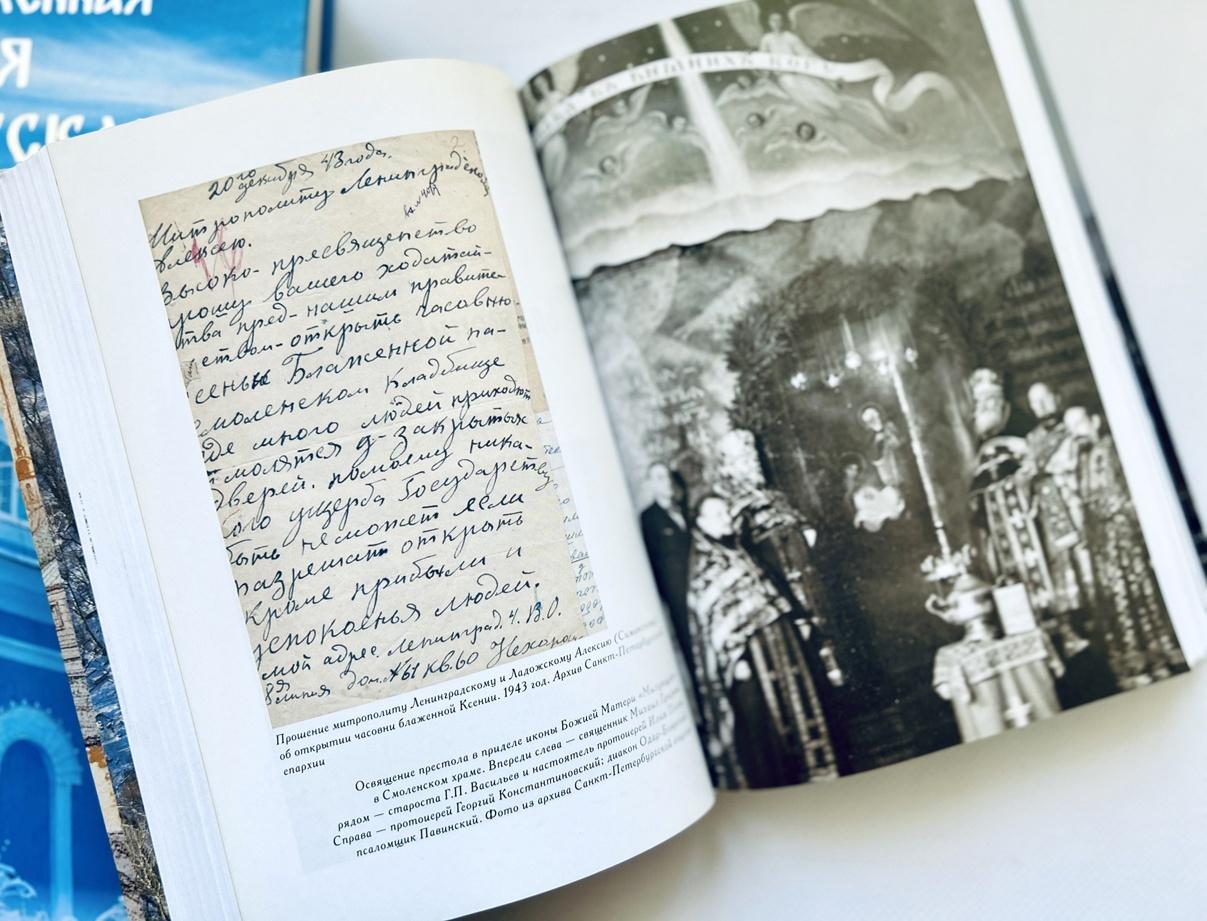 20го декабря 43 года.
Митрополиту Ленинградскому
Алексею.
высоко-пресвященство
прошу вашего ходатай-
ства пред-нашим правите-
ством-открыть часовню
сеньи Блаженной на-
смоленском Кладбище
где много людей приходят
молятся у-закрытых
дверей. помоему ника-
кого ущерба Государству
быть неможет если
разрешат открыть
кроме прибыли и
успокоенья людей.
мой адрес Ленинград. 4. В.О.
8я линия дом. №61 кв. 60
Прошение митрополиту Ленинградскому и Ладожскому Алексию
об открытии часовни блаженной Ксении. 1943 год. Архив Санкт-Петербургской
епархии
Освящение престола в приделе иконы Божией Матери
в Смоленском храме. Впереди слева — священник Михаил
рядом — староста Г.П. Васильев и настоятель протоиерей
Справа — протоиерей Георгий Константиновский; диакон
псаломщик Павинский. Фото из архива Санкт-Петербургской епархии